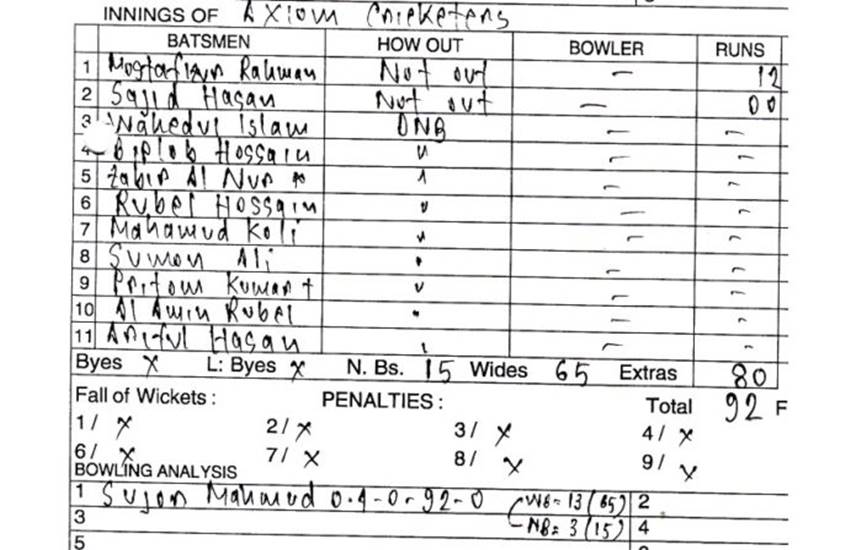 INNINGS OF Axiom Cricketers
BATSMEN HOW OUT BOWLER RUNS
1 Mostafizur Rahman Not out — 12
2 Sajid Hasan Not out — 00
3 Wahedul Islam DNB — —
4 Biplob Hossain " — —
5 Zabir Al Nur * " — —
6 Rubel Hossain " — —
7 Mahamud Koli " — —
8 Sumon Ali " — —
9 Pritom Kumar + " — —
10 Al Amin Rubel " — —
11 Ariful Hasan " — —
Byes x L: Byes x N. Bs. 15 Wides 65 Extras 80
Fall of Wickets : PENALTIES : Total 92 F
1/ x 2/ x 3/ x 4/ x
6/ x 7/ x 8/ x 9/ x
BOWLING ANALYSIS
1 Sujon Mahmud 0.4-0-92-0 WB = 13 (65) 2
3 NB = 3 (15) 4
5